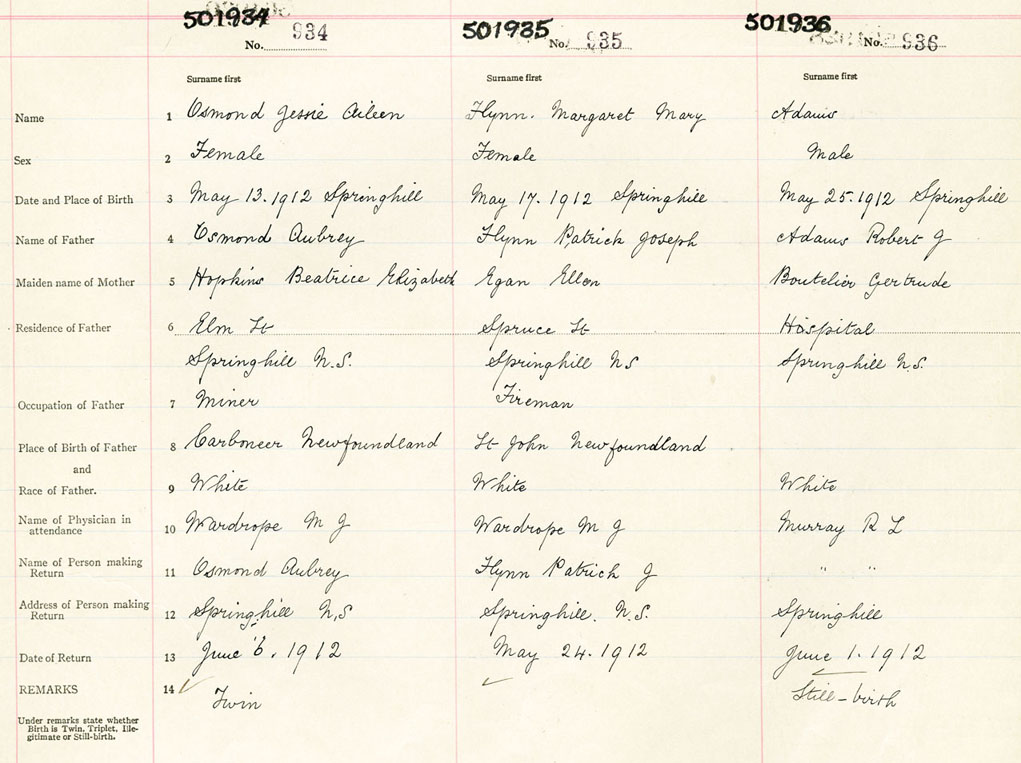 501934 501935 501936
No. 934 No. 935 No. 936
Surname first Surname first Surname first
Name 1 Osmond Jessie Aileen Flynn. Margaret Mary Adams
Sex 2 Female Female Male
Date and Place of Birth 3 May 13. 1912 Springhill May 17. 1912 Springhill May 25. 1912 Springhill
Name of Father 4 Osmond Aubrey Flynn Patrick Joseph Adams Robert J
Maiden name of Mother 5 Hopkins Beatrice Elizabeth Egan Ellen Boutelier Gertrude
Residence of Father 6 Elm St Spruce St Hospital
Springhill N.S. Springhill NS Springhill N.S.
Occupation of Father 7 Miner Fireman
Place of Birth of Father 8 Carboneer Newfoundland St John Newfoundland
and
Race of Father. 9 White White White
Name of Physician in
attendance 10 Wardrope M J Wardrope M J Murray R L
Name of Person making
Return 11 Osmond Aubrey Flynn Patrick J " "
Address of Person making
Return 12 Springhill N.S Springhill. N.S. Springhill
Date of Return 13 June 6. 1912 May 24. 1912 June 1. 1912
REMARKS 14 Twin Still-birth
Under remarks state whether
Birth is Twin, Triplet, Ille-
gitimate or Still-birth.